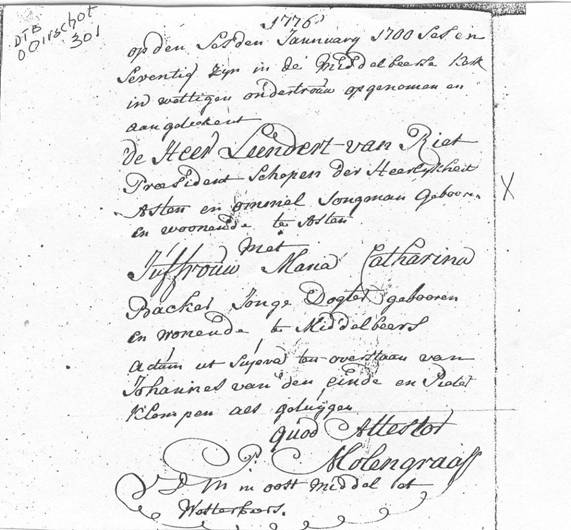 DTB
Oirschot
301
1776
op den Sesden Jannuary 1700 Ses en
Seventig zijn in de Middelbeerse Kerk
in wettigen ondertrouw opgenomen en
aangeteekent
De Heer Leendert van Riet
Præsident Schepen der Heerlykheit
Asten en ommel Jongman Geboore
en woonende te Asten
Met
Juffrouw Maria Catharina
Backer Jonge Dogter gebooren
en wonende te Middelbeers
Actum ut Supra ten overstaan van
Johannes van den einde en Pieter
Klompen als getuygen
quod Attestor
P. Molengraaff
V D M in oost Middel et
Westerbeers.
X